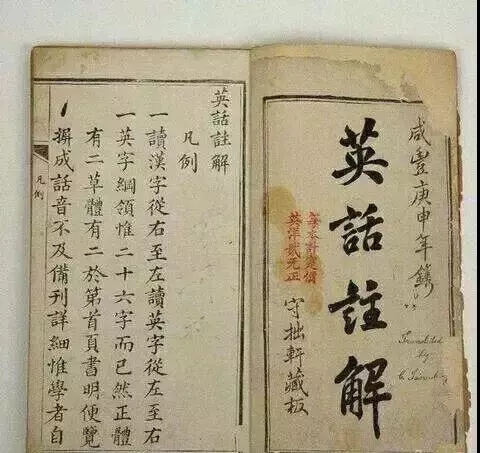 咸豐庚申年鐫
英話註解
每本計定價
英洋貳元正
守拙軒藏板
Translated
by
英話註解
凡例
一讀漢字從右至左讀英字從左至右
一英字綱領惟二十六字而已然正體
有二草體有二於第首頁書明便覽
撰成話音不及備刊詳細惟學者自
凡例